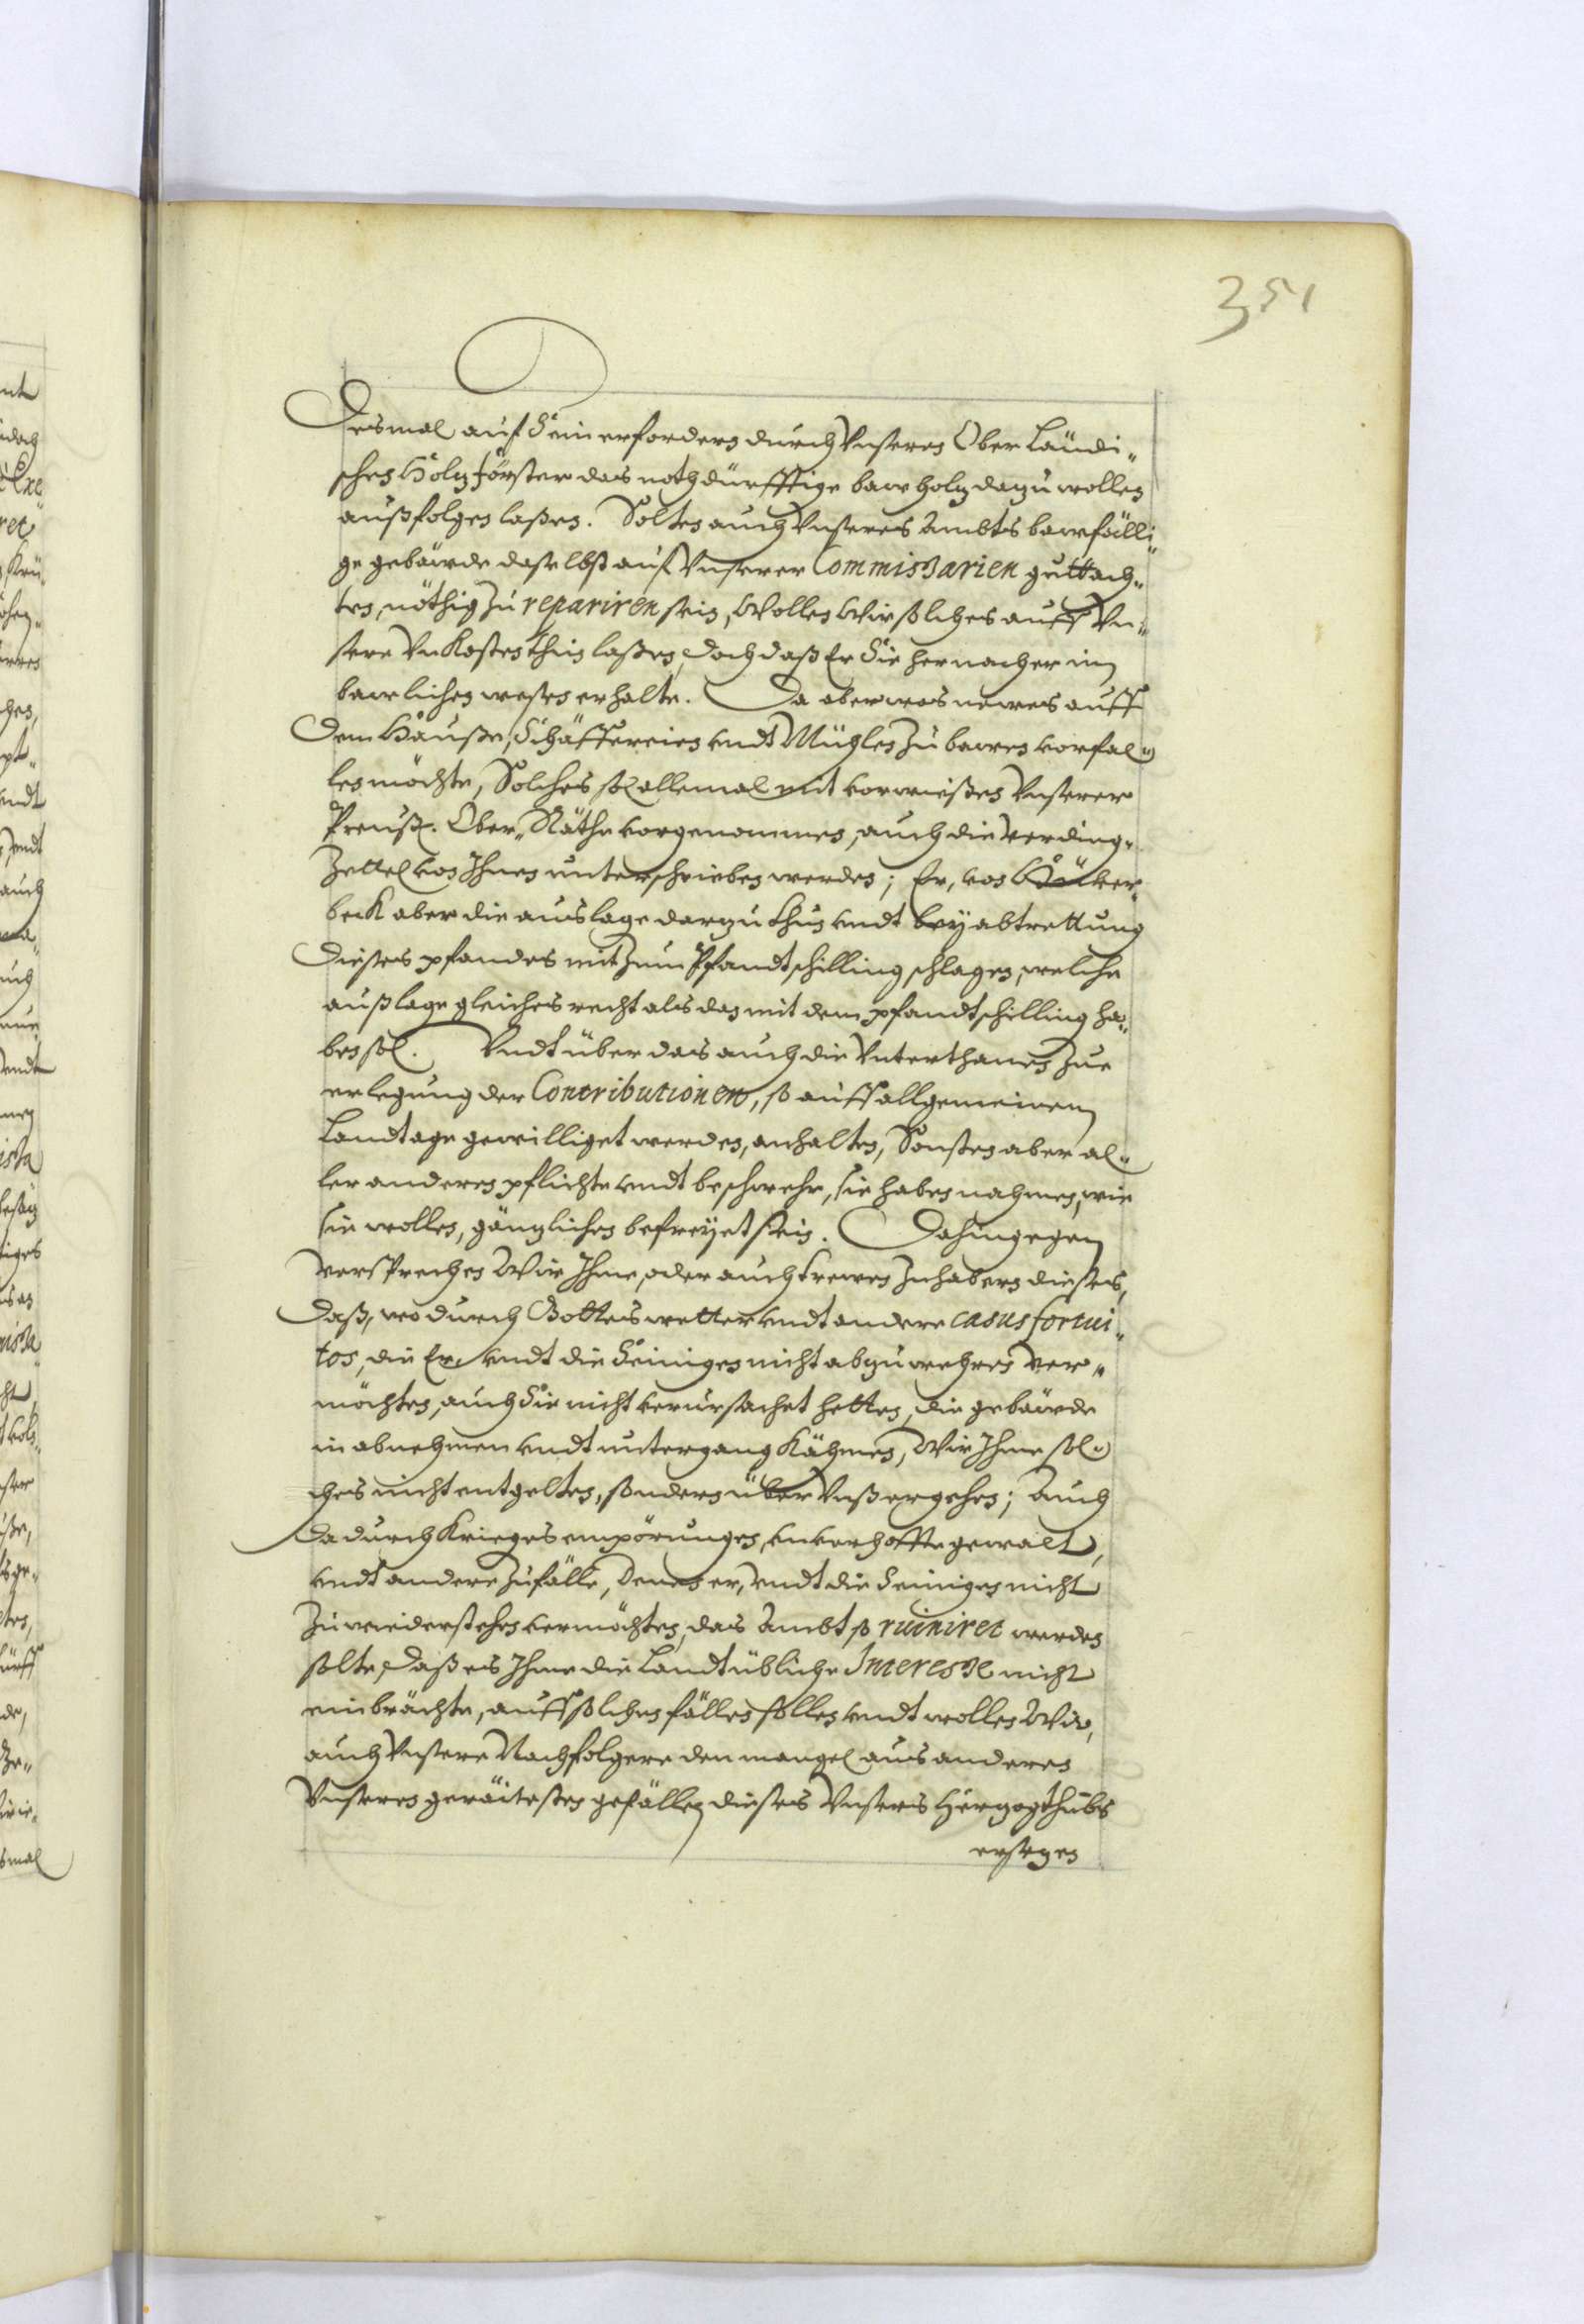 351
Desmal auf Sein erfordern durch Unseren Ober Ländi„
schen Holtz förster das nothdürfftige baw holtz dazu wollen
außfolgen laßen. Solten auch Unseres Ambts bawfälli„
ge gebäwde daselbst auf Unserer Commissarien guttach„
ten, nöthig zu repariren sein, Wollen Wir solches auff Un„
sere Unkosten thun laßen, doch daß Er Sie hernacher im
bawlichen wesen erhalte. Da aber was newes auff
Dem Hauße, Schäffereien undt Mühlen zu bawen vorfal„
len möchte, Solches sol allemal mit vorwießen Unserer
Preuß. Ober„Räthe vorgenommen, auch die verding„
Zettel von Ihnen unterschrieben werden; Er, von
beck aber die auslage darzu thun undt bey abtrettung
dieses pfandes mit zum Pfandtschilling schlagen, welche
außlage gleiches recht als das mit dem pfandtschilling ha„
ben sol. Undt über das auch die Unterthanen zue
erlegung der Contributionen, so auff allgemeinem
Landtage gewilliget werden, anhalten, Sonsten aber al„
ler anderen pflichte undt beschwehr, sie haben nahmen, wie
sie wollen, gäntzlichen befreyet sein. Dahingegen
versprechen Wir Ihme, oder auch trewen Inhabern dieses,
Daß, wo durch Gottes wetter undt andere casus fortui„
tos, die Er undt die Seinigen nicht abzuwehren ver„
möchten, auch Sie nicht verursachet hetten, die gebäwde
in abnehmen undt untergang kähmen, Wir Ihme sol„
ches nicht entgelten, sondern über Unß ergehen; Auch
Da durch Krieges empörungen, unverhoffte gewalt,
undt andere Zufälle, denen er, undt die Seinigen nicht
zu wiederstehen vermöchten, das Ambt so ruiniret werden
solte, Daß es Ihme die Landtübliche Interesse nicht
einbrächte, auff solchen fällen sollen undt wollen Wir,
auch Unsere Nachfolgere den mangel aus anderen
Unseren geräitesten gefällen dieses Unsers Hertzogthubs
ersetzen